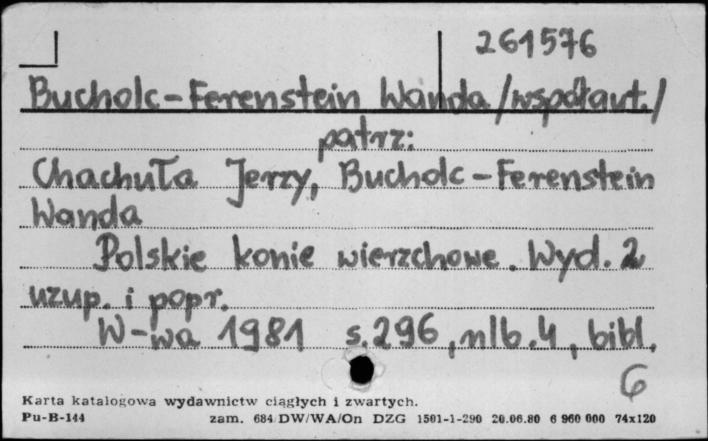 261576
Bucholc-Ferenstein Wanda /współaut./
patrz:
Chachuła Jerzy, Bucholc-Ferenstein
Wanda
Polskie konie wierzchowe. Wyd. 2
uzup. i popr.
W-wa 1981 s. 296, nlb. 4, bibl.
6
Karta katalogowa wydawnictw ciągłych i zwartych.
Pu-B-144 zam. 684/DW/WA/On DZG 1501-1-290 20.06.80 6 960 000 74x120